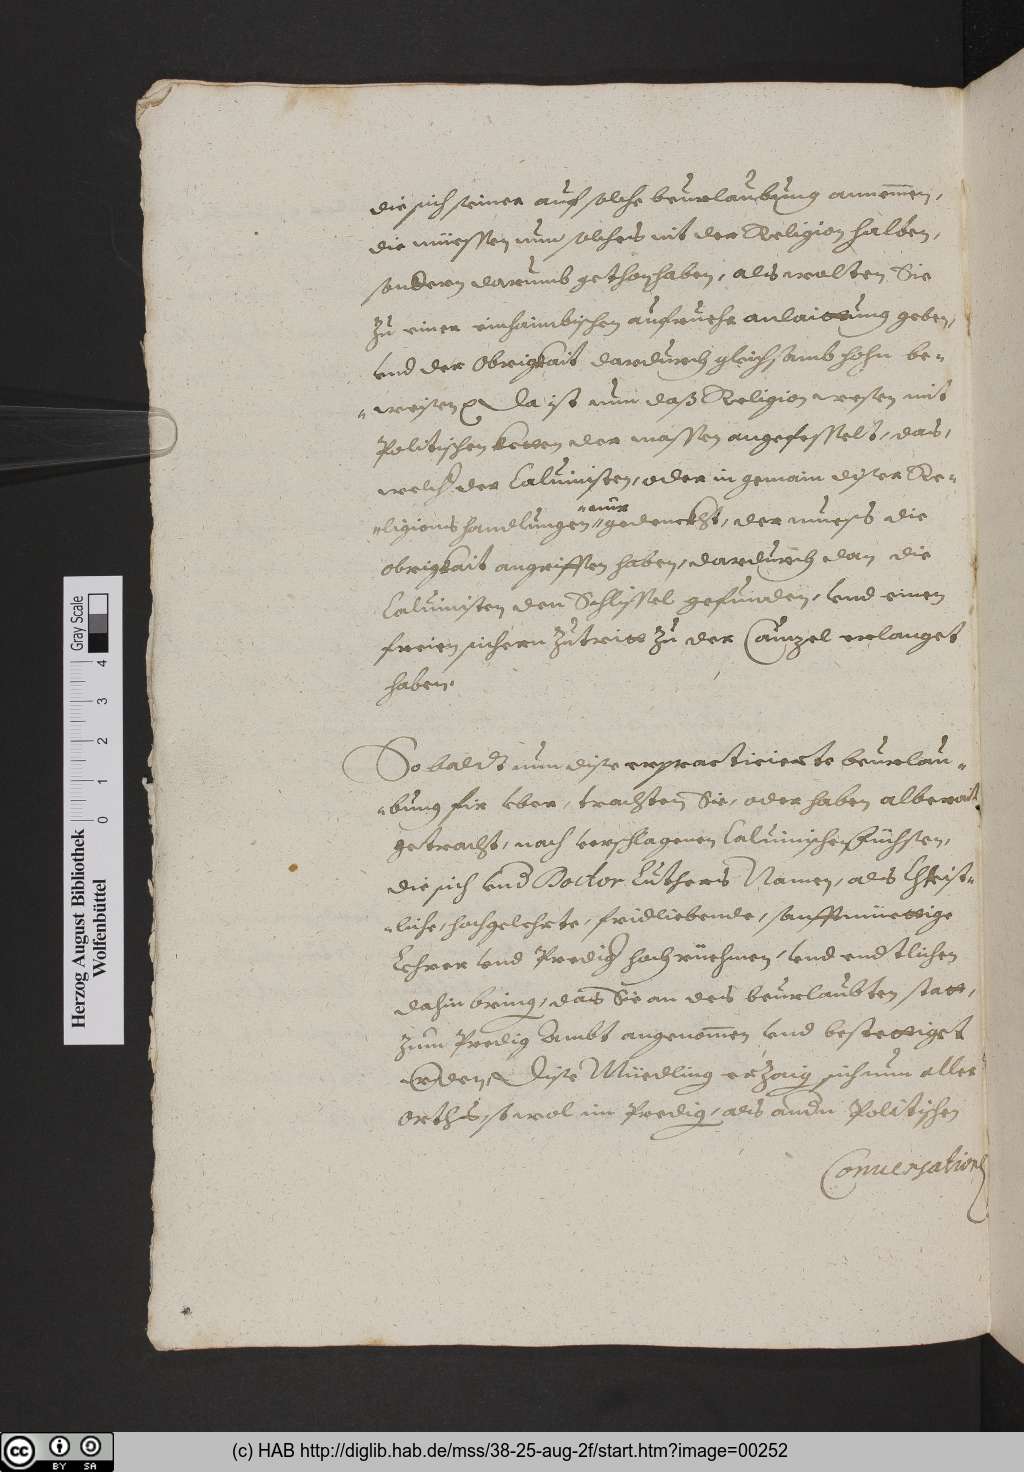 die sich seiner auf solche beurlaubung annemen,
die müessen nun solches nit der Religion halben,
sondern darumb gethon haben, als wolten Sie
zu einer einhaimbischen aufruehr anlaittung geben,
vnd der Obrigkait dardurch gleichsamb hohn be-
-weisen Da ist nun daß Religion wesen mit
Politischen ketten der massen angefesselt, das,
welch der Caluinisten, oder in gemain diser Re-
-nur
-ligions handlungen gedenckht, der mueß die
obrigkait angriffen haben, dardurch dan die
Caluinisten den Schlissel gefunden, vnd einen
freien sichern Zutritt zu der Canzel erlanget
haben.
So baldt nun dise erpracticierte beurlau-
-bung fir vber, trachten Sie, oder haben alberait
getracht, nach verschlagenen Caluinischen Füchsen,
die sich vnd Doctor Luthers Namen, als Christ-
-liche, hochgelehrte, fridliebende, sanfftmüettige
Lehrer vnd Predig hoch rüehmen, vnd endtlichen
dahin bring, das Sie an des beurlaubten statt,
zum Predig Ambt angenomen vnd bestettiget
werden, Dise Müedling erzaig sich nun aller
Orth, so wol im Predig, als andn Politischen
Conuersation
Herzog August Bibliothek
Wolfenbüttel
0 1 2 3 4
Gray Scale
cc BY SA
(c) HAB http://diglib.hab.de/mss/38-25-aug-2f/start.htm?image=00252